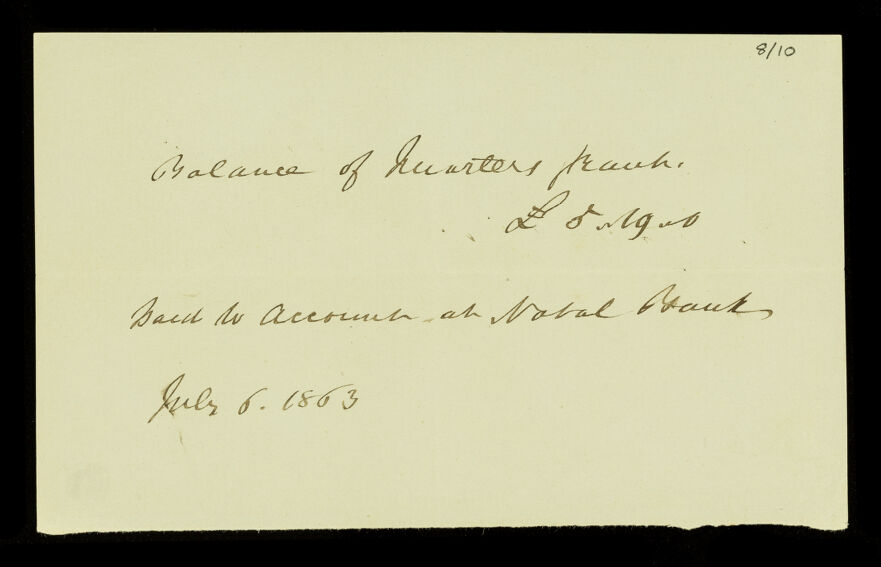 8/10
Balance of Quarters
£ 5.19.0
Paid to Account at Natal Bank
July 6. 1863